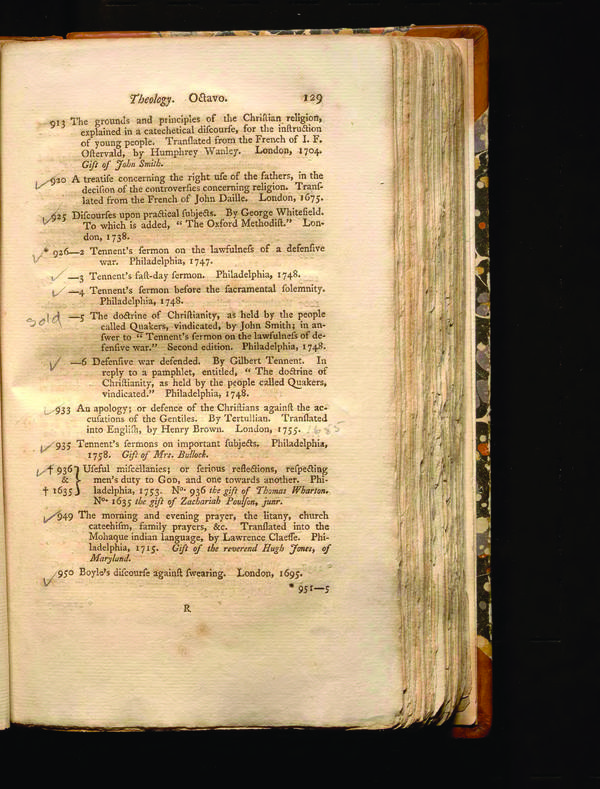 Theology. Octavo. 129
913 The grounds and principles of the Chriſtian religion,
explained in a catechetical diſcourſe, for the inſtruction
of young people. Tranſlated from the French of I. F.
Oſtervald, by Humphrey Wanley. London, 1704.
Gift of John Smith.
✓920 A treatiſe concerning the right uſe of the fathers, in the
deciſion of the controverſies concerning religion. Tranſ-
lated from the French of John Daille. London, 1675.
✓925 Diſcourſes upon practical ſubjects. By George Whitefield.
To which is added, “ The Oxford Methodiſt.” Lon-
don, 1738.
✓* 926—2 Tennent's ſermon on the lawfulneſs of a defenſive
war. Philadelphia, 1747.
✓ —3 Tennent's faſt-day ſermon. Philadelphia, 1748.
✓ —4 Tennent's ſermon before the ſacramental ſolemnity.
Philadelphia, 1748.
Sold —5 The doctrine of Chriſtianity, as held by the people
called Quakers, vindicated, by John Smith; in an-
ſwer to “ Tennent's ſermon on the lawfulneſs of de-
fenſive war.” Second edition. Philadelphia, 1748.
✓ —6 Defenſive war defended. By Gilbert Tennent. In
reply to a pamphlet, entitled, “ The doctrine of
Chriſtianity, as held by the people called Quakers,
vindicated.” Philadelphia, 1748.
✓933 An apology; or defence of the Chriſtians againſt the ac-
cuſations of the Gentiles. By Tertullian. Tranſlated
into Engliſh, by Henry Brown. London, 1755. 1655
✓935 Tennent's ſermons on important ſubjects. Philadelphia,
1758. Gift of Mrs. Bullock.
✓† 936 } Uſeful miſcellanies; or ſerious reflections, reſpecting
& men's duty to God, and one towards another. Phi-
† 1635 ladelphia, 1753. No. 936 the gift of Thomas Wharton.
No. 1635 the gift of Zachariah Poulſon, junr.
✓949 The morning and evening prayer, the litany, church
catechiſm, family prayers, &c. Tranſlated into the
Mohaque indian language, by Lawrence Claeſſe. Phi-
ladelphia, 1715. Gift of the reverend Hugh Jones, of
Maryland.
✓950 Boyle's diſcourſe againſt ſwearing. London, 1695.
* 951—5
R